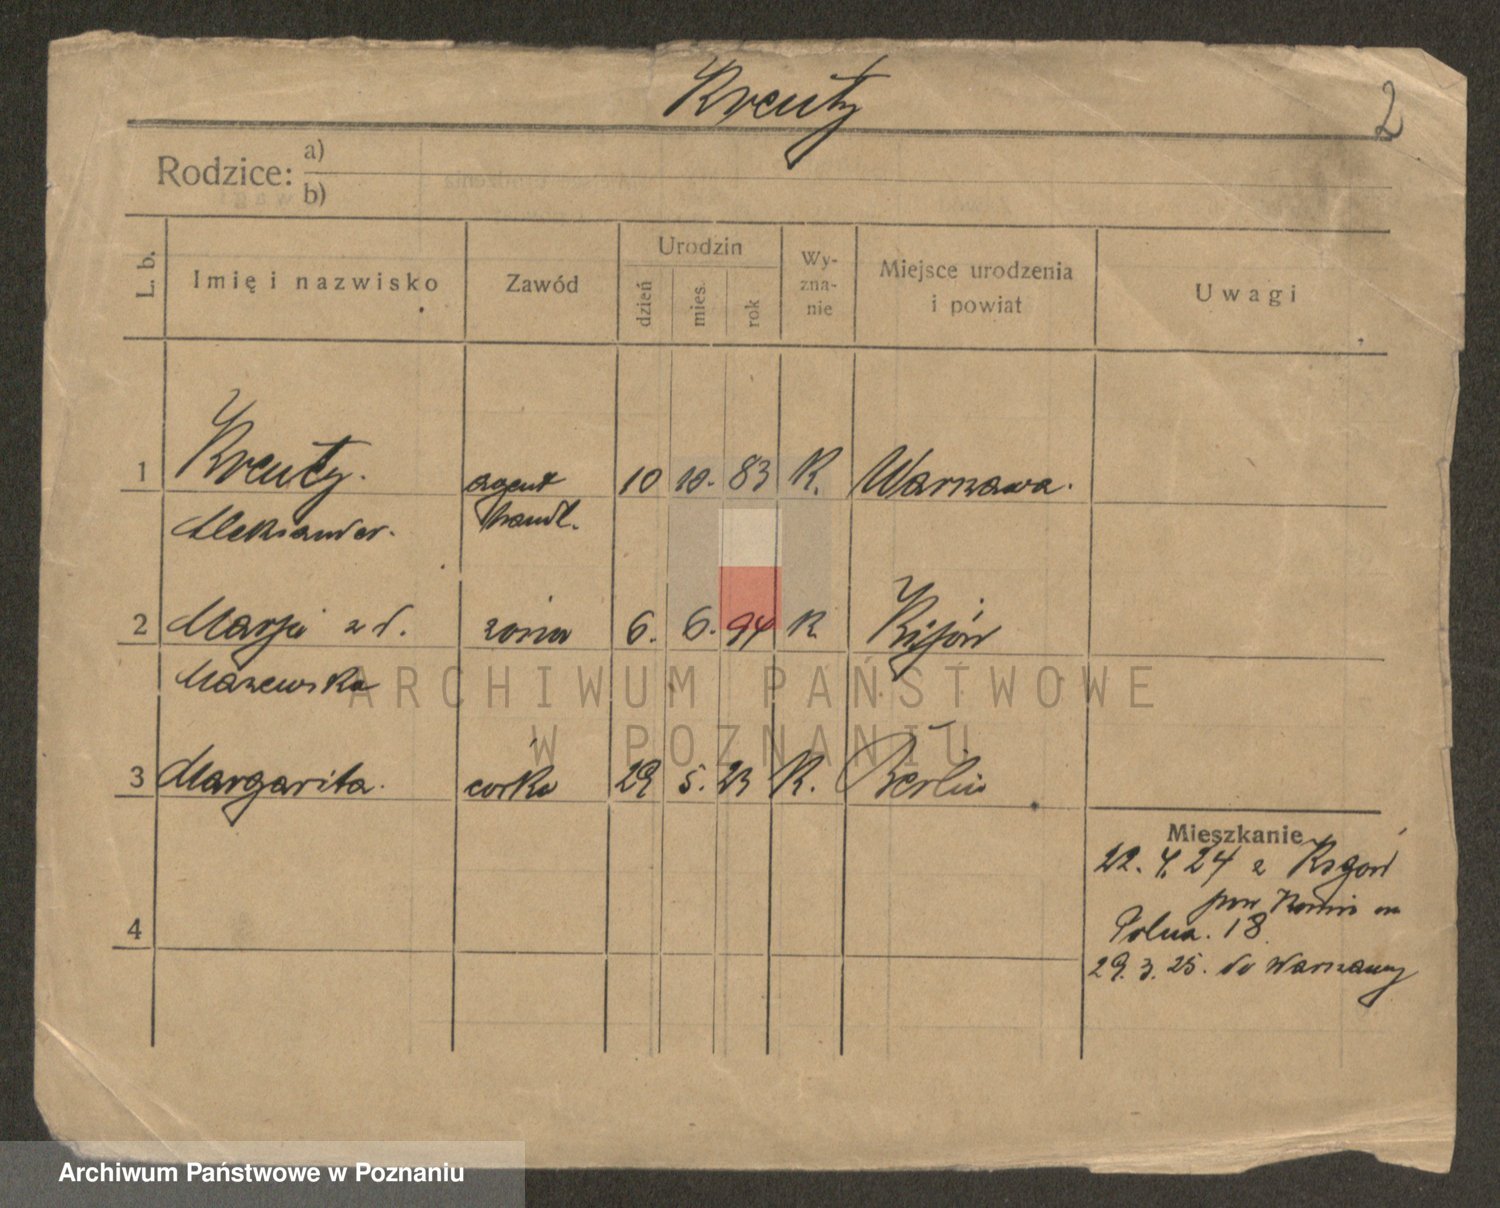 Kreuty
2
Rodzice: a)
b)
L. b. Imię i nazwisko Zawód Urodzin dzień mies. rok Wy-zna-nie Miejsce urodzenia i powiat Uwagi
1 Kreuty. agent 10 10. 83 K. Warszawa.
Aleksander. handl.
2 Marja z d. żona 6. 6. 94 K. Kijów
Mazewska
3 Margarita. córka 29 5. 23 K. Berlin
Mieszkanie
22. 4. 24 z
pow. Konin
4
Polna. 18
29. 3. 25. do Warszawy
ARCHIWUM PAŃSTWOWE
W POZNANIU
Archiwum Państwowe w Poznaniu